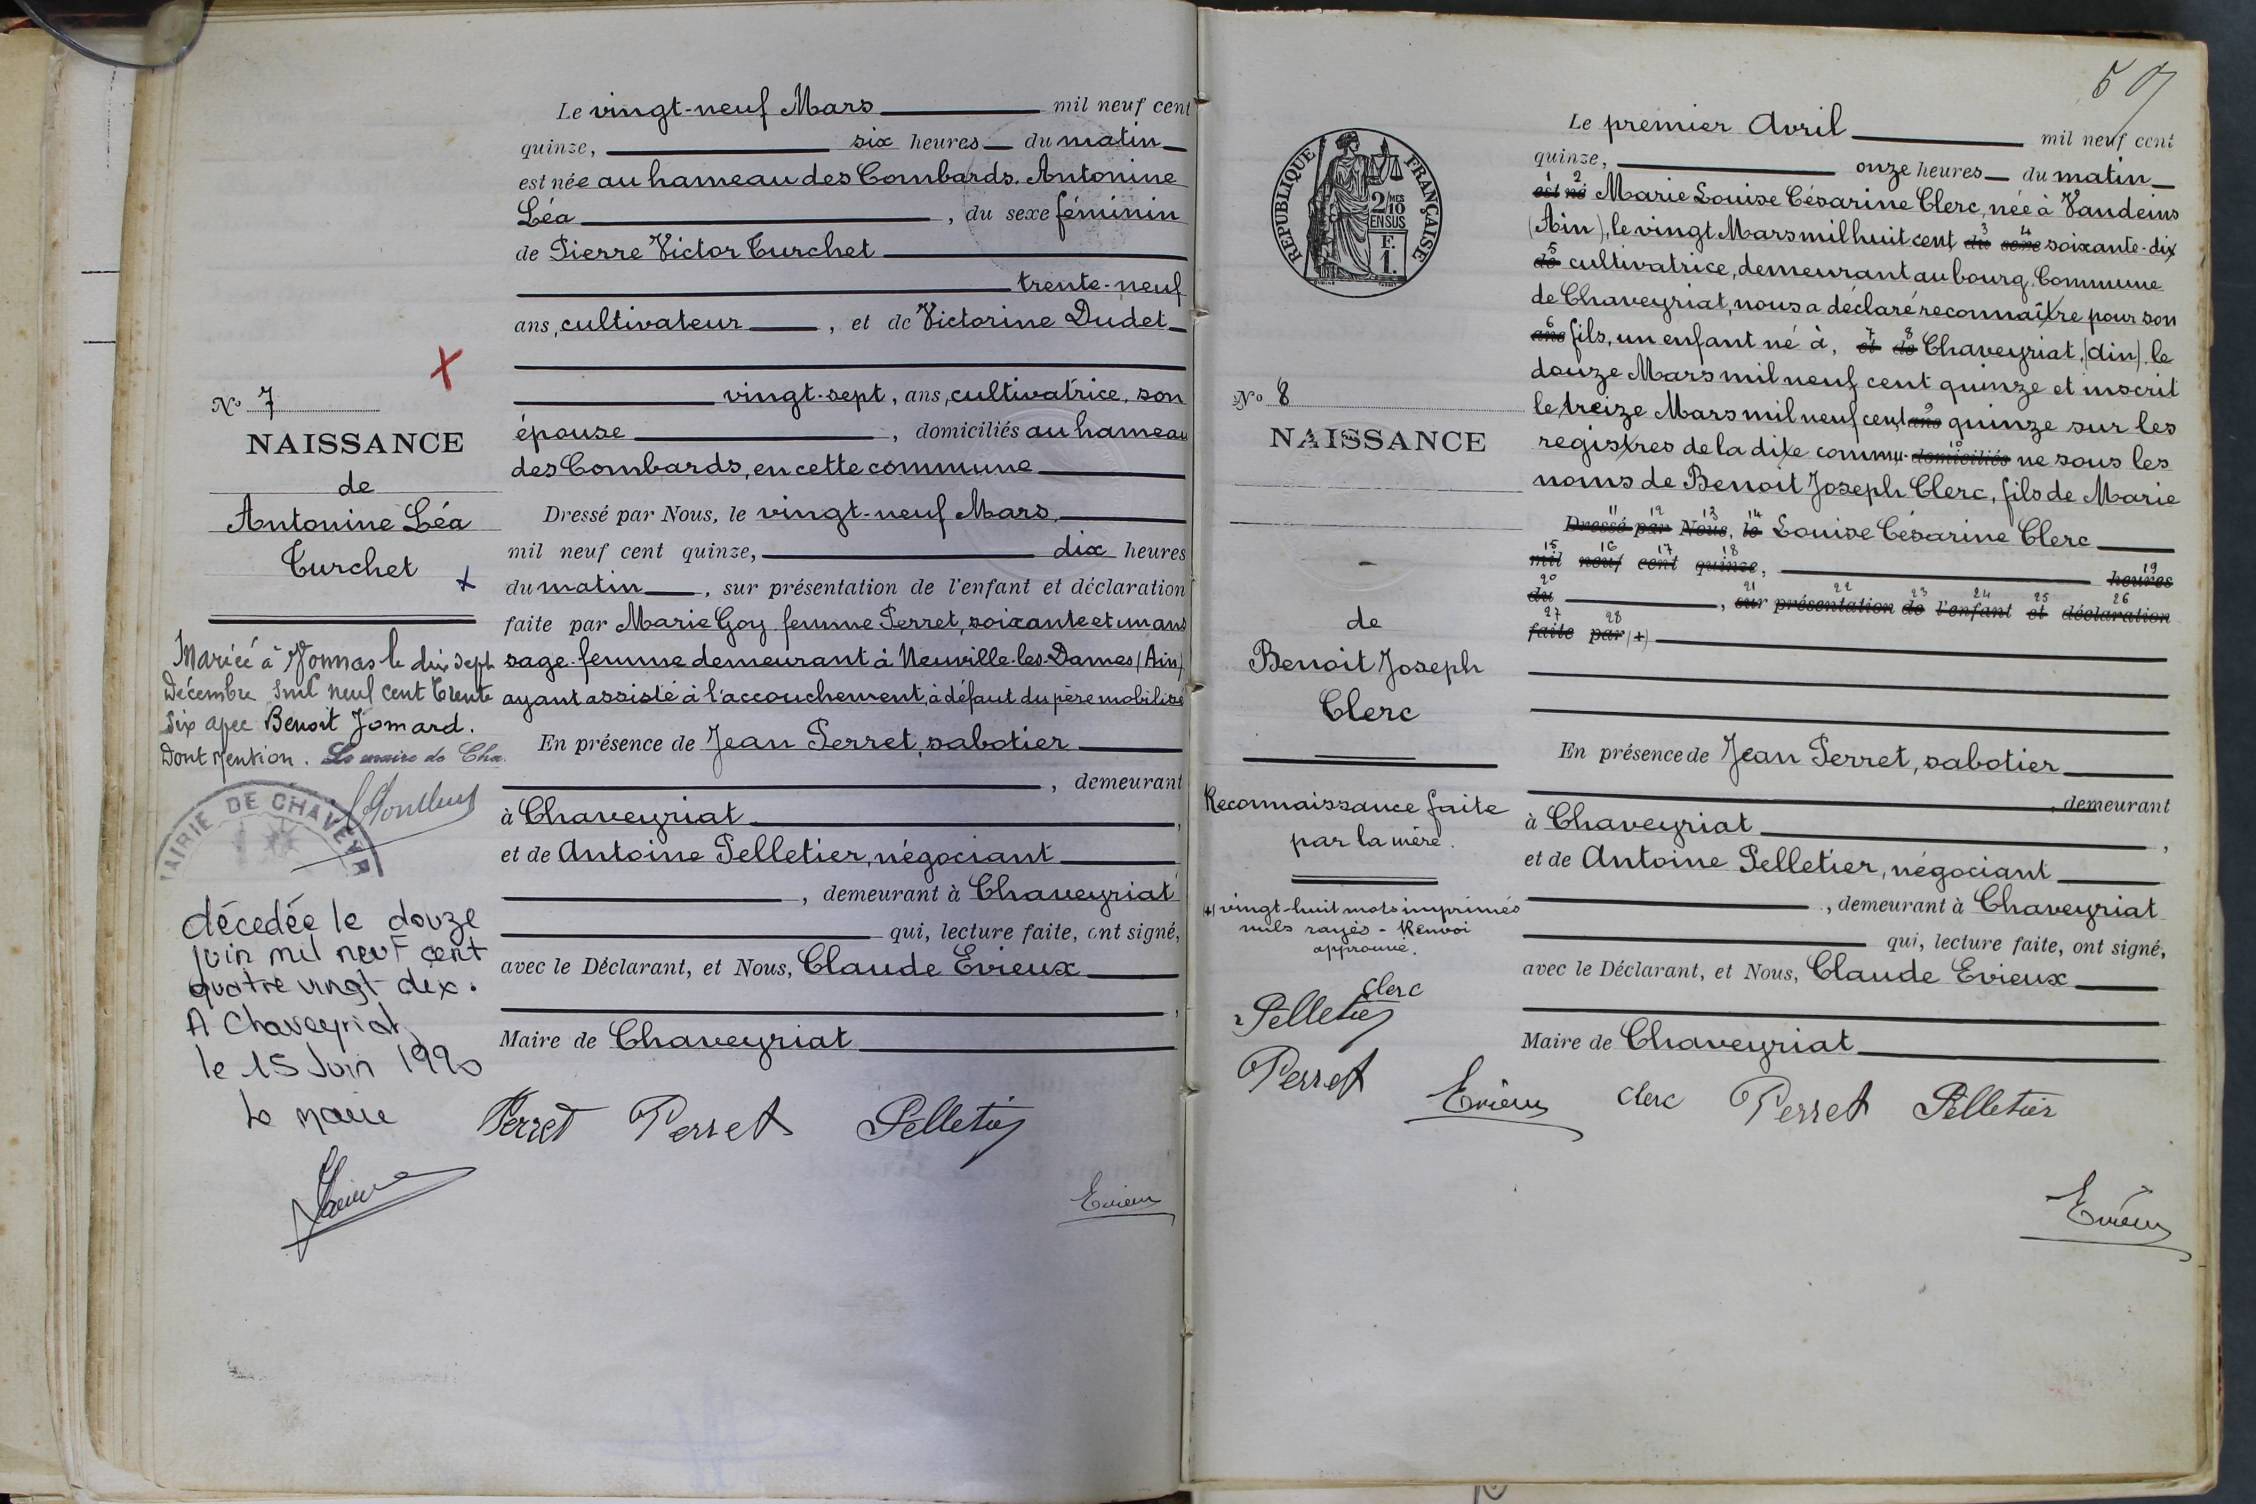 Le vingt-neuf Mars mil neuf cent
quinze, six heures du matin
est née au hameau des Combards. Antonine
Léa , du sexe féminin
de Pierre Victor Turchet
trente-neuf
ans, cultivateur , et de Victorine Dudet
vingt-sept, ans, cultivatrice, son
épouse , domiciliés au hameau
des Combards, en cette commune
Dressé par Nous, le vingt-neuf Mars,
mil neuf cent quinze, dix heures
du matin , sur présentation de l'enfant et déclaration
faite par Marie Goy femme Perret, soixante et un ans
sage-femme demeurant à Neuville-les-Dames (Ain)
ayant assisté à l'accouchement, à défaut du père mobilisé
En présence de Jean Perret, sabotier
, demeurant
à Chaveyriat ,
et de Antoine Pelletier, négociant
, demeurant à Chaveyriat
qui, lecture faite, ont signé,
avec le Déclarant, et Nous, Claude Evieux
,
Maire de Chaveyriat
Perret Perret Pelletier
Evieux
No 7
NAISSANCE
de
Antonine Léa
Turchet
Mariée à Vonnas le dix sept
Décembre mil neuf cent trente
six avec Benoit Jomard.
Dont mention. Le maire de Cha.
MAIRIE DE CHAVEYR
décédée le douze
juin mil neuf cent
quatre vingt dix.
A Chaveyriat,
le 15 Juin 1990
Le Maire
507
Le premier Avril mil neuf cent
quinze, onze heures du matin
1 2
est né Marie Louise Césarine Clerc, née à Vandeins
(Ain), le vingt Mars mil huit cent du 3 sexe 4 soixante-dix
5
de cultivatrice, demeurant au bourg, Commune
de Chaveyriat, nous a déclaré reconnaître pour son
6 7 8
ans fils, un enfant né à, et de Chaveyriat, (Ain), le
douze Mars mil neuf cent quinze et inscrit
le treize Mars mil neuf cent ans 9 quinze sur les
registres de la dite commu- domiciliés 10 ne sous les
noms de Benoit Joseph Clerc, fils de Marie
11 12 13 14
Dressé par Nous, le Louise Césarine Clerc
15 16 17 18 19
mil neuf cent quinze, heures
20 21 22 23 24 25 26
du , sur présentation de l'enfant et déclaration
27 28
faite par (+)
En présence de Jean Perret, sabotier
, demeurant
à Chaveyriat ,
et de Antoine Pelletier, négociant
, demeurant à Chaveyriat
qui, lecture faite, ont signé,
avec le Déclarant, et Nous, Claude Evieux
Maire de Chaveyriat
clerc Perret Pelletier
Evieux
REPUBLIQUE FRANÇAISE
2/MES
10
EN SUS
F.
1.
No 8
NAISSANCE
de
Benoit Joseph
Clerc
Reconnaissance faite
par la mère.
(+) vingt-huit mots imprimés
nuls rayés - Renvoi
approuvé.
clerc
Pelletier
Perret
Evieux